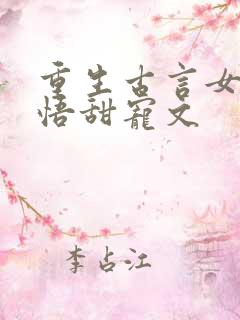 重生古言女
悟甜寵文
李占江